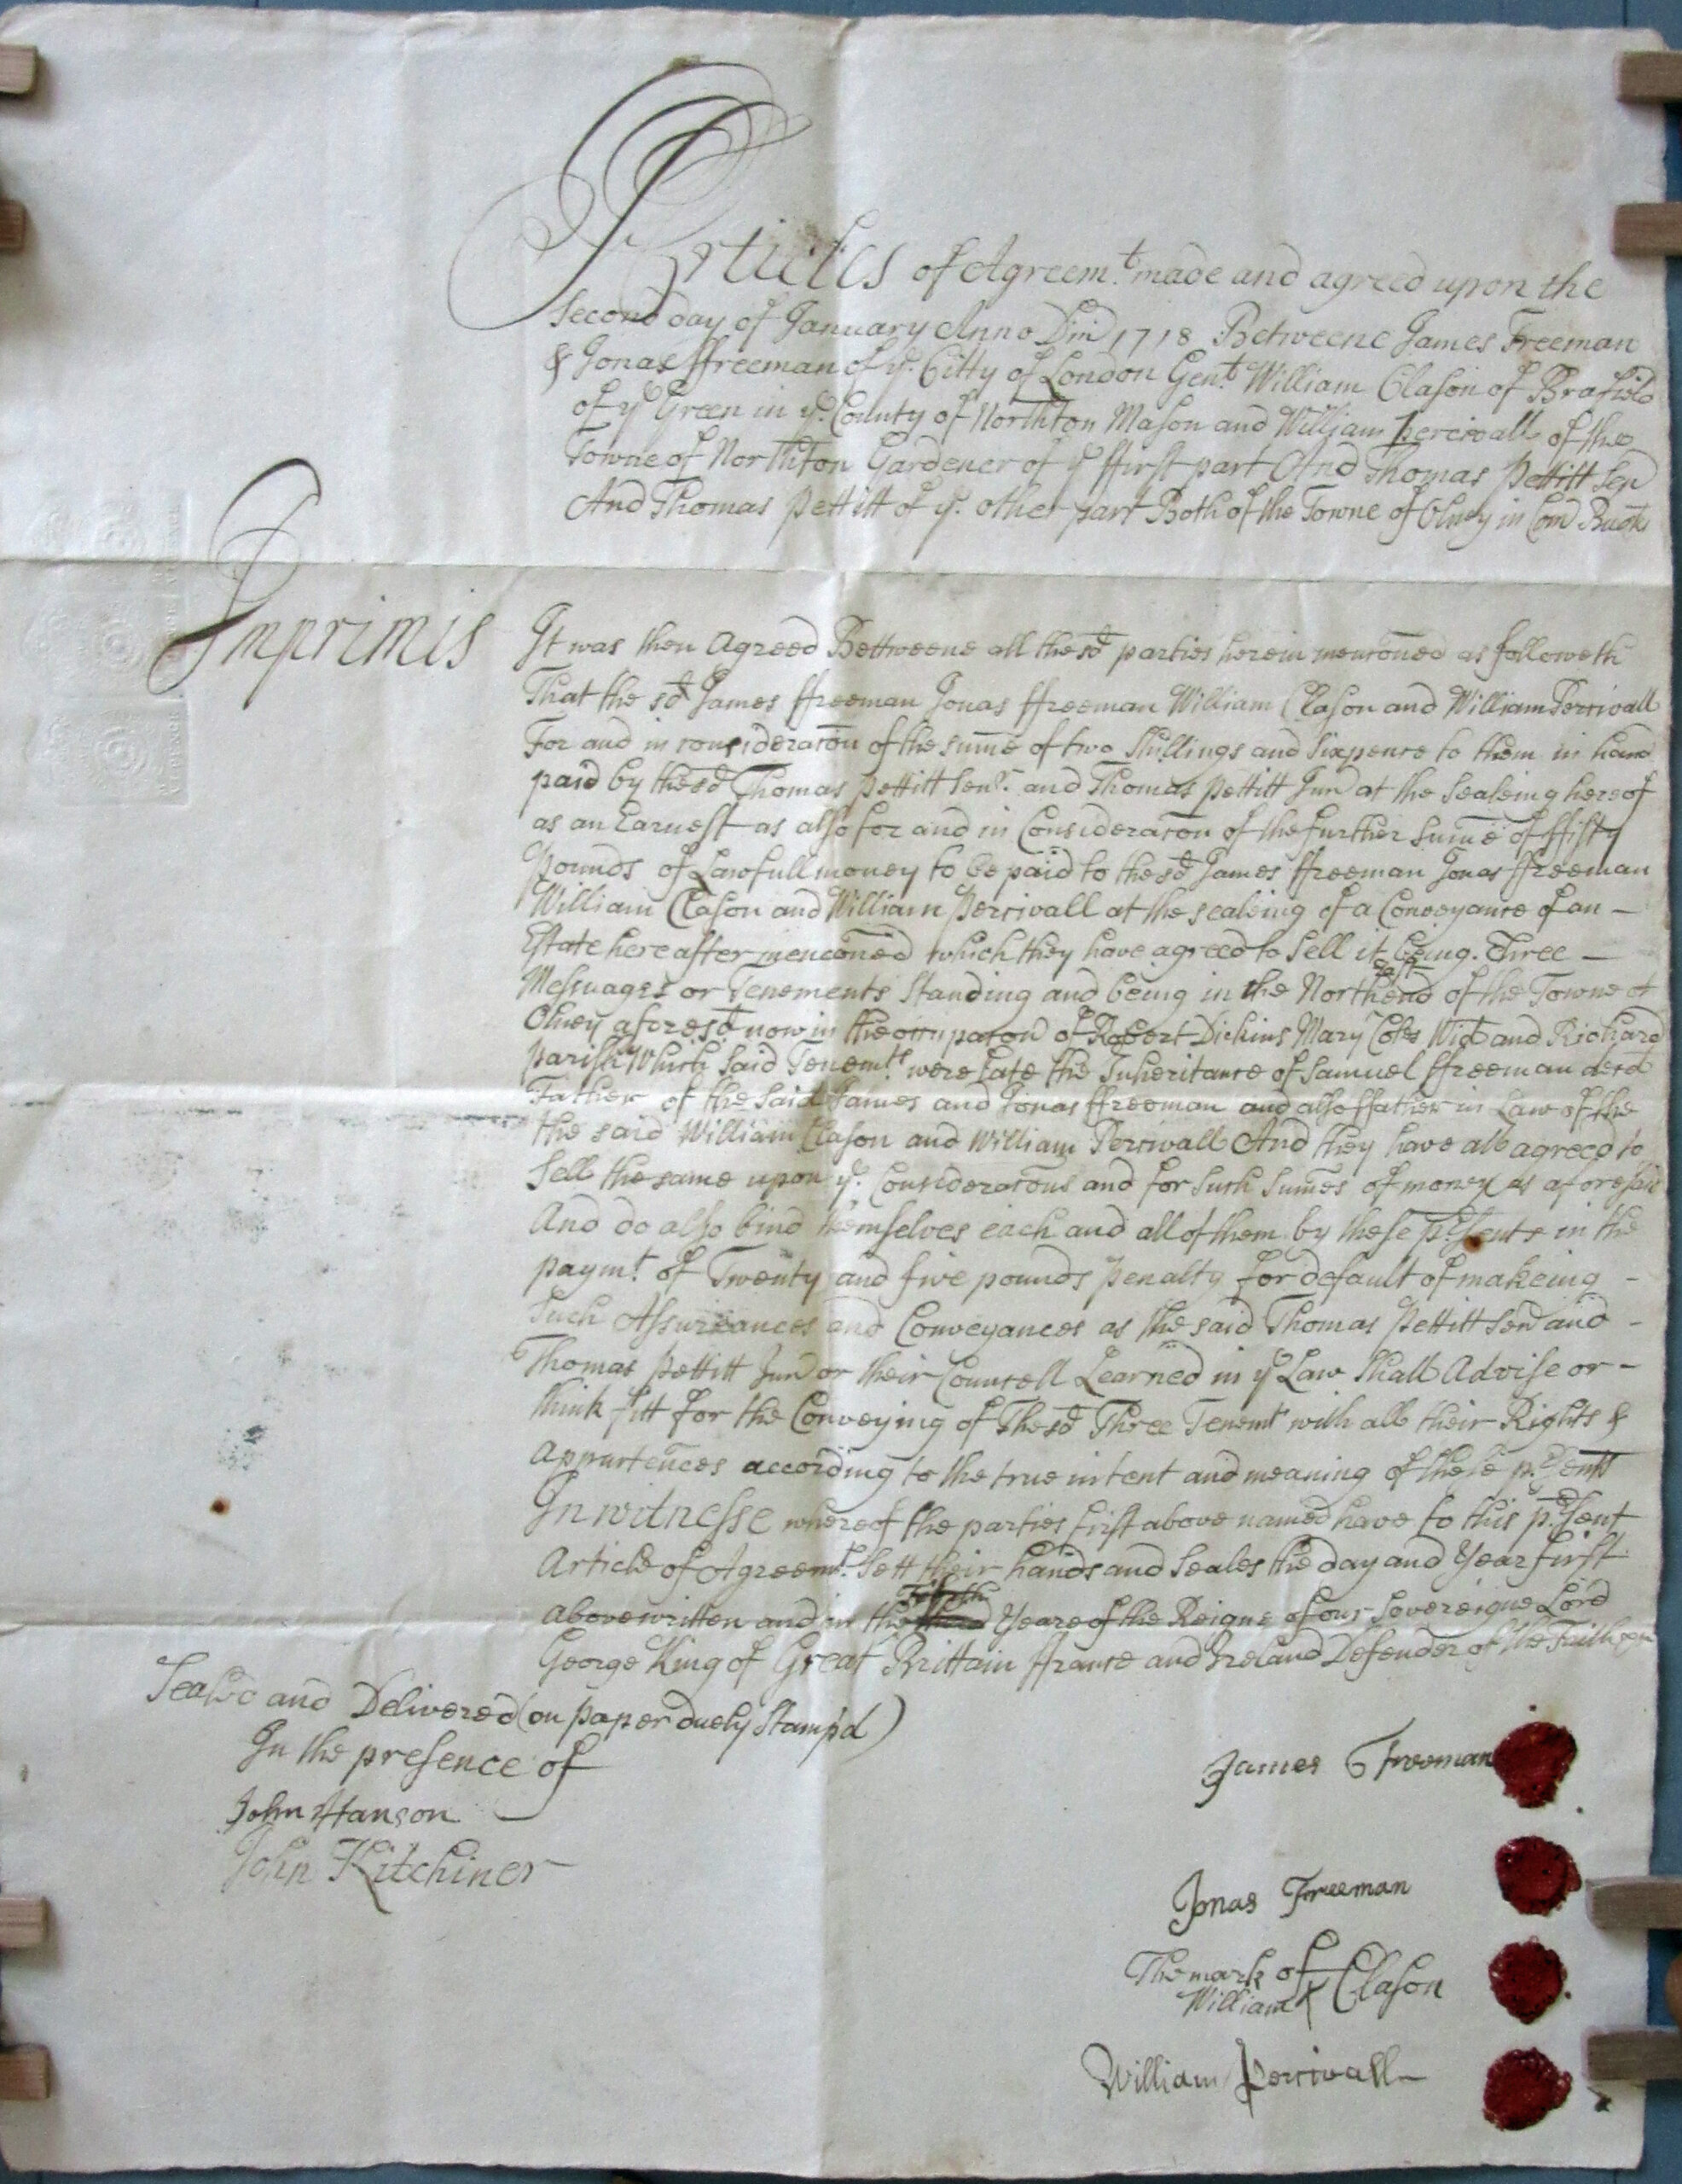 Articles of Agreem.t made and agreed upon the
Second day of January Anno Dni 1718 Betweene James Freeman
& Jonas ffreeman of ye. Citty of London Gent. William Clason of Brafield
of ye Green in ye. County of Northton Mason and William Percivall of the
Towne of Northton Gardener of ye ffirst part And Thomas Pettitt Sen
And Thomas Pettitt of ye. other part Both of the Towne of Olney in Com Buck
Imprimis
It was then Agreed Bettweene all the sd parties herein menconed as followeth
That the sd James ffreeman Jonas ffreeman William Clason and William Percivall
For and in consideracon of the sume of two Shillings and Sixpence to them in hand
paid by the sd Thomas Pettitt Senr. and Thomas Pettitt Jun at the Sealeing hereof
as an Earnest as also for and in Consideracon of the further Sume of ffifty
Pounds of Lawfull money to be paid to the sd James ffreeman Jonas ffreeman
William Clason and William Percivall at the sealeing of a Conveyance of an –
Estate hereafter menconed which they have agreed to Sell it being. Three –
Messuages or Tenements Standing and being in the North east end of the Towne of
Olney aforesd now in the occupacon of Robert Dickins Mary Coles Wid and Richard
Parish Which Said Tenemts were Late the Inheritance of Samuel ffreeman decd
Father of the Said James and Jonas ffreeman and also ffather in Law of the
the said William Clason and William Percivall And they have all agreed to
Sell the same upon ye. Consideracons and for Such Sumes of money as aforesaid
And do also bind themselves each and all of them by these p.rsents in the
paymt. of Twenty and five pounds penalty for default of makeing –
Such Assureances and Conveyances as the said Thomas Pettitt Sen and –
Thomas Pettitt Jun or their Councell Learned in ye Law Shall Advise or –
think fitt for the Conveying of The sd Three Tenemts with all their Rights &
Appurtences according to the true intent and meaning of these p.rsents
In witnesse whereof the parties first above named have to this p.rsent
Article of Agreemt. Sett their hands and Seales the day and Year first
above written and in the Yeare of the Reigne of our Sovereigne Lord
George King of Great Brittain ffrance and Ireland Defender of the Faith
Sealed and Delivered (on paper duely Stamp'd)
In the presence of
John Hanson
John Kitchiner
James Freeman
Jonas Freeman
The mark of
William X Clason
William Percivall